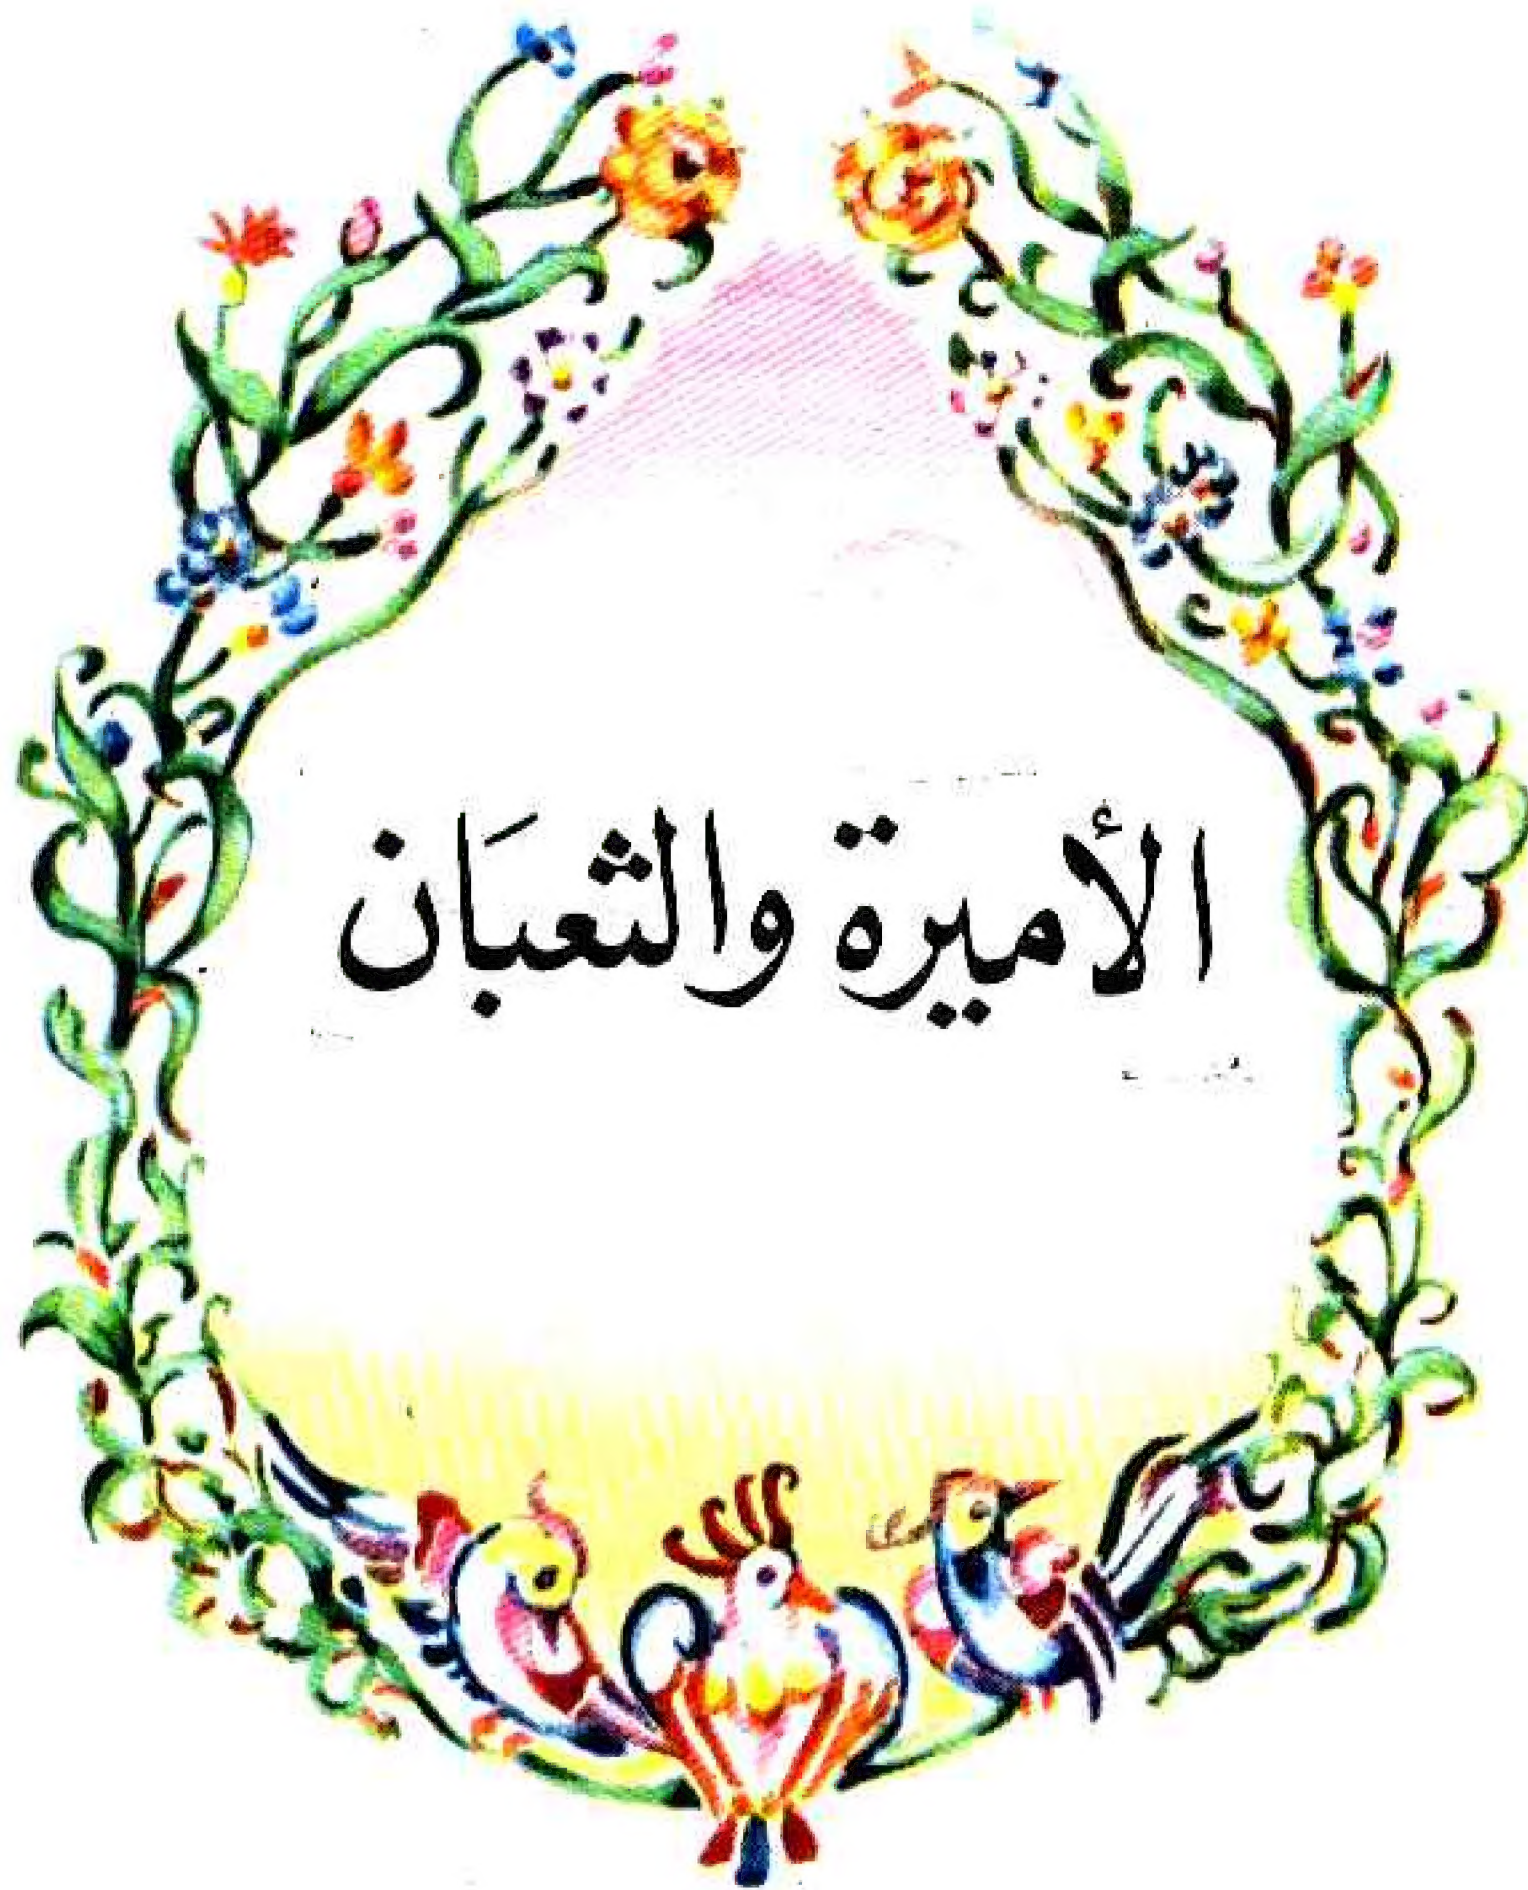 الأميرة والثعبَان